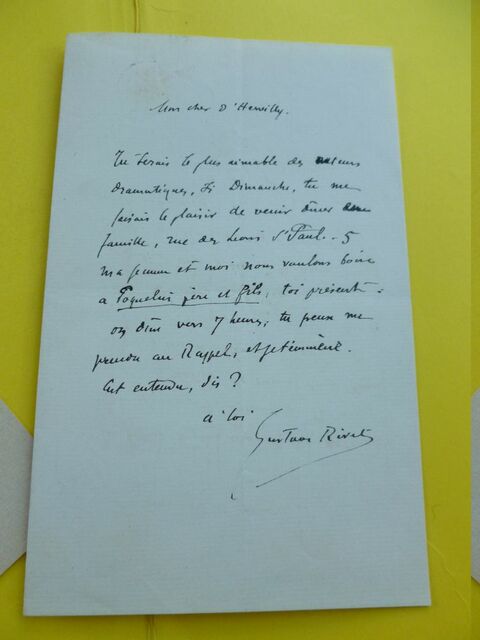 Mon cher d'Hervilly.
Tu serais le plus aimable des auteurs
dramatiques, si Dimanche, tu me
faisais le plaisir de venir dîner en
famille, rue des Lions St Paul. 5
ma femme et moi nous voulons boire
a Poquelin père et fils, toi présent =
on dîne vers 7 heures, tu peux me
prendre au Rappel, et je t'emmène.
C'est entendu, dis ?
a toi
Gustave Rivet